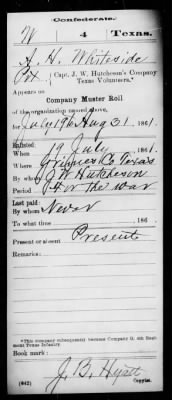 Confederate.
W 4 Texas.
A. H. Whiteside
Pvt, Capt. J. W. Hutcheson's Company
Texas Volunteers.*
Appears on
Company Muster Roll
of the organization named above,
for July 19 to Aug 31, 1861.
Enlisted:
When 19 July, 1861.
Where Grimes Co Texas
By whom J W Hutcheson
Period For the war
Last paid:
By whom Never
To what time 186 .
Present or absent Present
Remarks:
*This company subsequently became Company G, 4th Regiment Texas Infantry.
Book mark:
J. B. Hyatt
(642) Copyist.